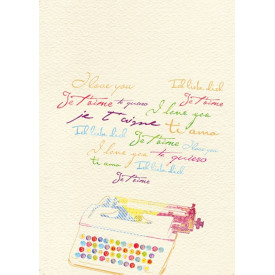 I love you Ich liebe dich
Je t'aime te quiero Je t'aime
I love you
je t'aime ti amo
Ich liebe dich
Je t'aime I love you
I love you te quiero
ti amo Ich liebe dich
Je t'aime